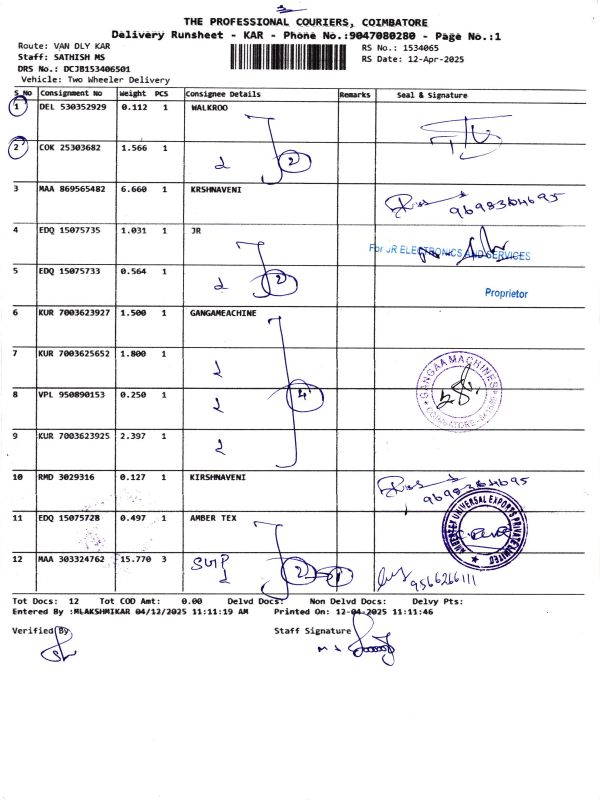 THE PROFESSIONAL COURIERS, COIMBATORE
Delivery Runsheet - KAR - Phone No.:9047080280 - Page No.:1
Route: VAN DLY KAR
Staff: SATHISH MS
DRS No.: DCJB153406501
Vehicle: Two Wheeler Delivery
RS No.: 1534065
RS Date: 12-Apr-2025
S_No Consignment No Weight PCS Consignee Details Remarks Seal & Signature
1 DEL 530352929 0.112 1 WALKROO
2 COK 25303682 1.566 1 2
3 MAA 869565482 6.660 1 KRSHNAVENI
4 EDQ 15075735 1.031 1 JR
For JR ELECTRONICS AND SERVICES
5 EDQ 15075733 0.564 1 2
Proprietor
6 KUR 7003623927 1.500 1 GANGAMEACHINE
7 KUR 7003625652 1.800 1
GANGAA MACHINES
8 VPL 950890153 0.250 1 4
9 KUR 7003623925 2.397 1
10 RMD 3029316 0.127 1 KIRSHNAVENI
11 EDQ 15075728 0.497 1 AMBER TEX
UNIVERSAL EXPORTS PRIVATE LIMITED
12 MAA 303324762 15.770 3 2 1
9566266111
Tot Docs: 12 Tot COD Amt: 0.00 Delvd Docs: Non Delvd Docs: Delvy Pts:
Entered By :MLAKSHMIKAR 04/12/2025 11:11:19 AM Printed On: 12-04-2025 11:11:46
Verified By Staff Signature